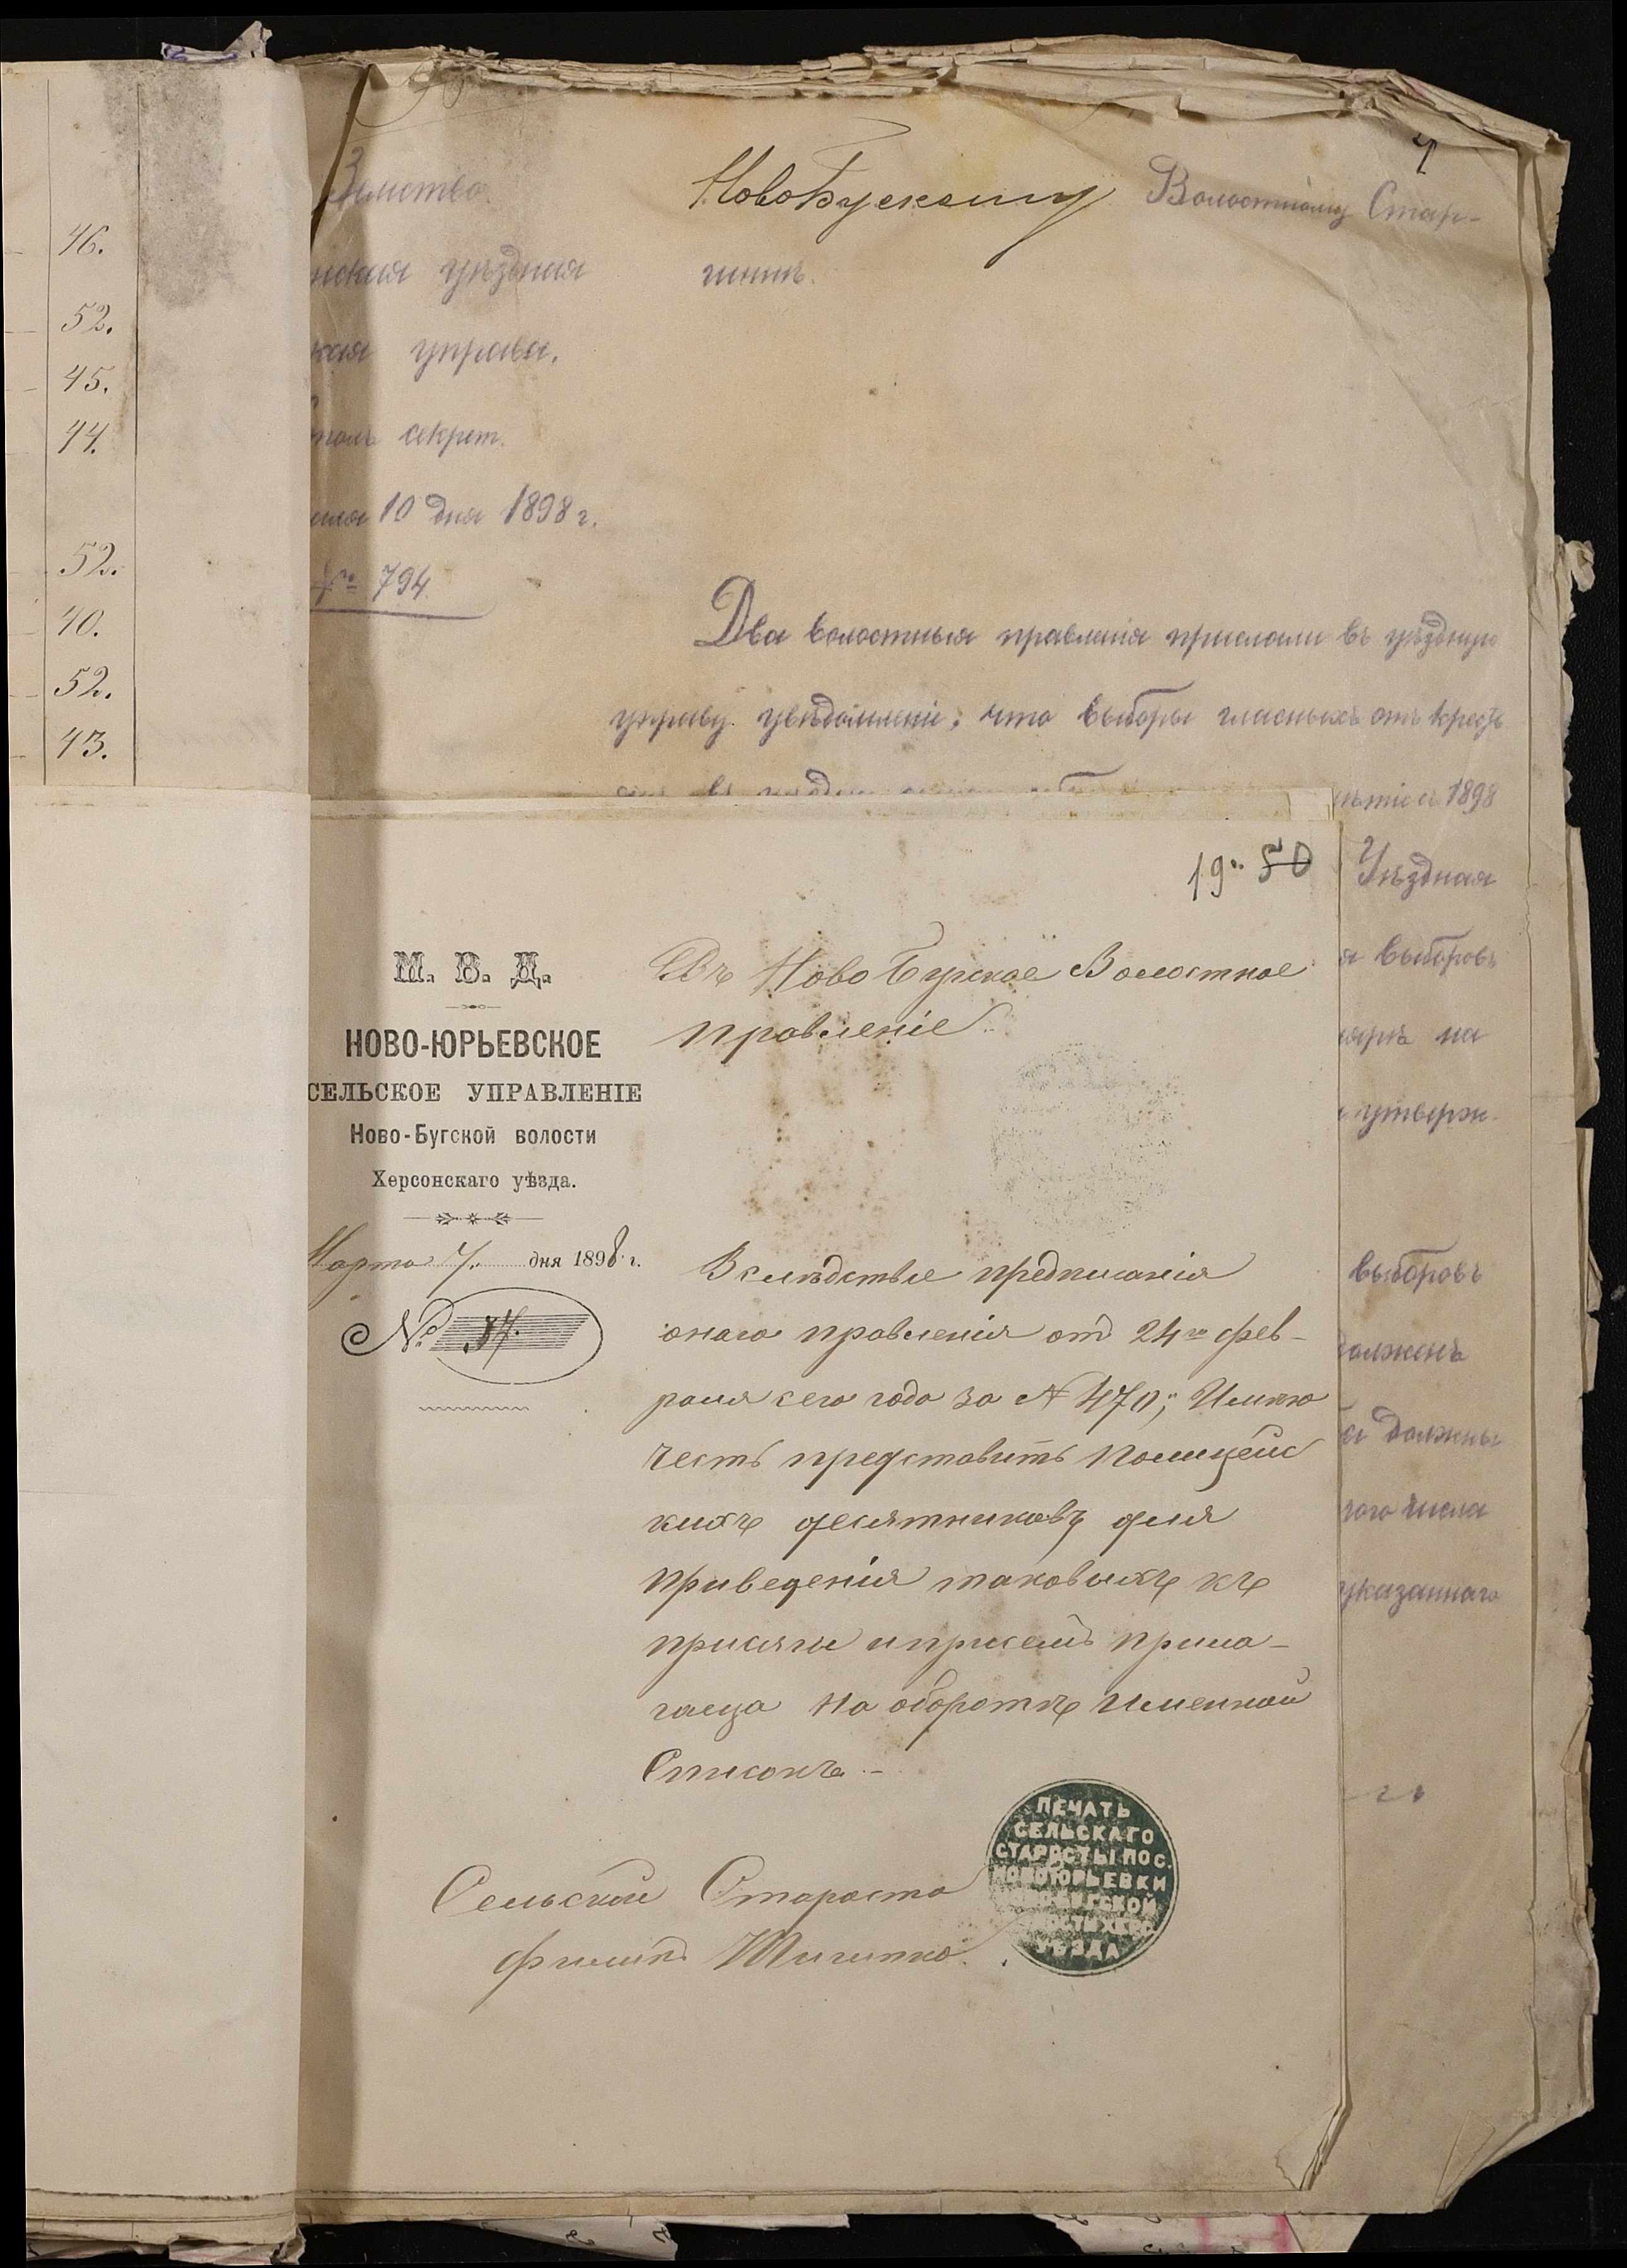 46.
52.
45.
44.
52.
40.
52.
43.
Земство.
НовоБугскому Волостному Стар-
шинѣ.
уѣздная
управа.
секрет.
10 дня 1898 г.
№ 794.
Два волостныя правленія прислали въ уѣздную
управу увѣдомленіе, что выборы гласныхъ отъ кресть
1898
Уѣздная
выборовъ
на
утверж-
выборовъ
долженъ
должны
числа
указаннаго
19. 50
М. В. Д.
НОВО-ЮРЬЕВСКОЕ
СЕЛЬСКОЕ УПРАВЛЕНІЕ
Ново-Бугской волости
Херсонскаго уѣзда.
Марта 7. дня 1898 г.
№ 37.
Въ Ново Бугское Волостное
правленіе.
Вслѣдствіе предписанія
онаго правленія отъ 24го фев-
раля сего года за № 470; Имѣю
честь представить Полицейс
кихъ десятниковъ для
приведенія таковыхъ къ
присяги и присемъ прила-
гаеца на оборотѣ Именной
Списокъ.-
Сельский Староста
Филипъ
ПЕЧАТЬ
СЕЛЬСКАГО
СТАРОСТЫ ПОС.
НОВОЮРЬЕВКИ
УѢЗДА